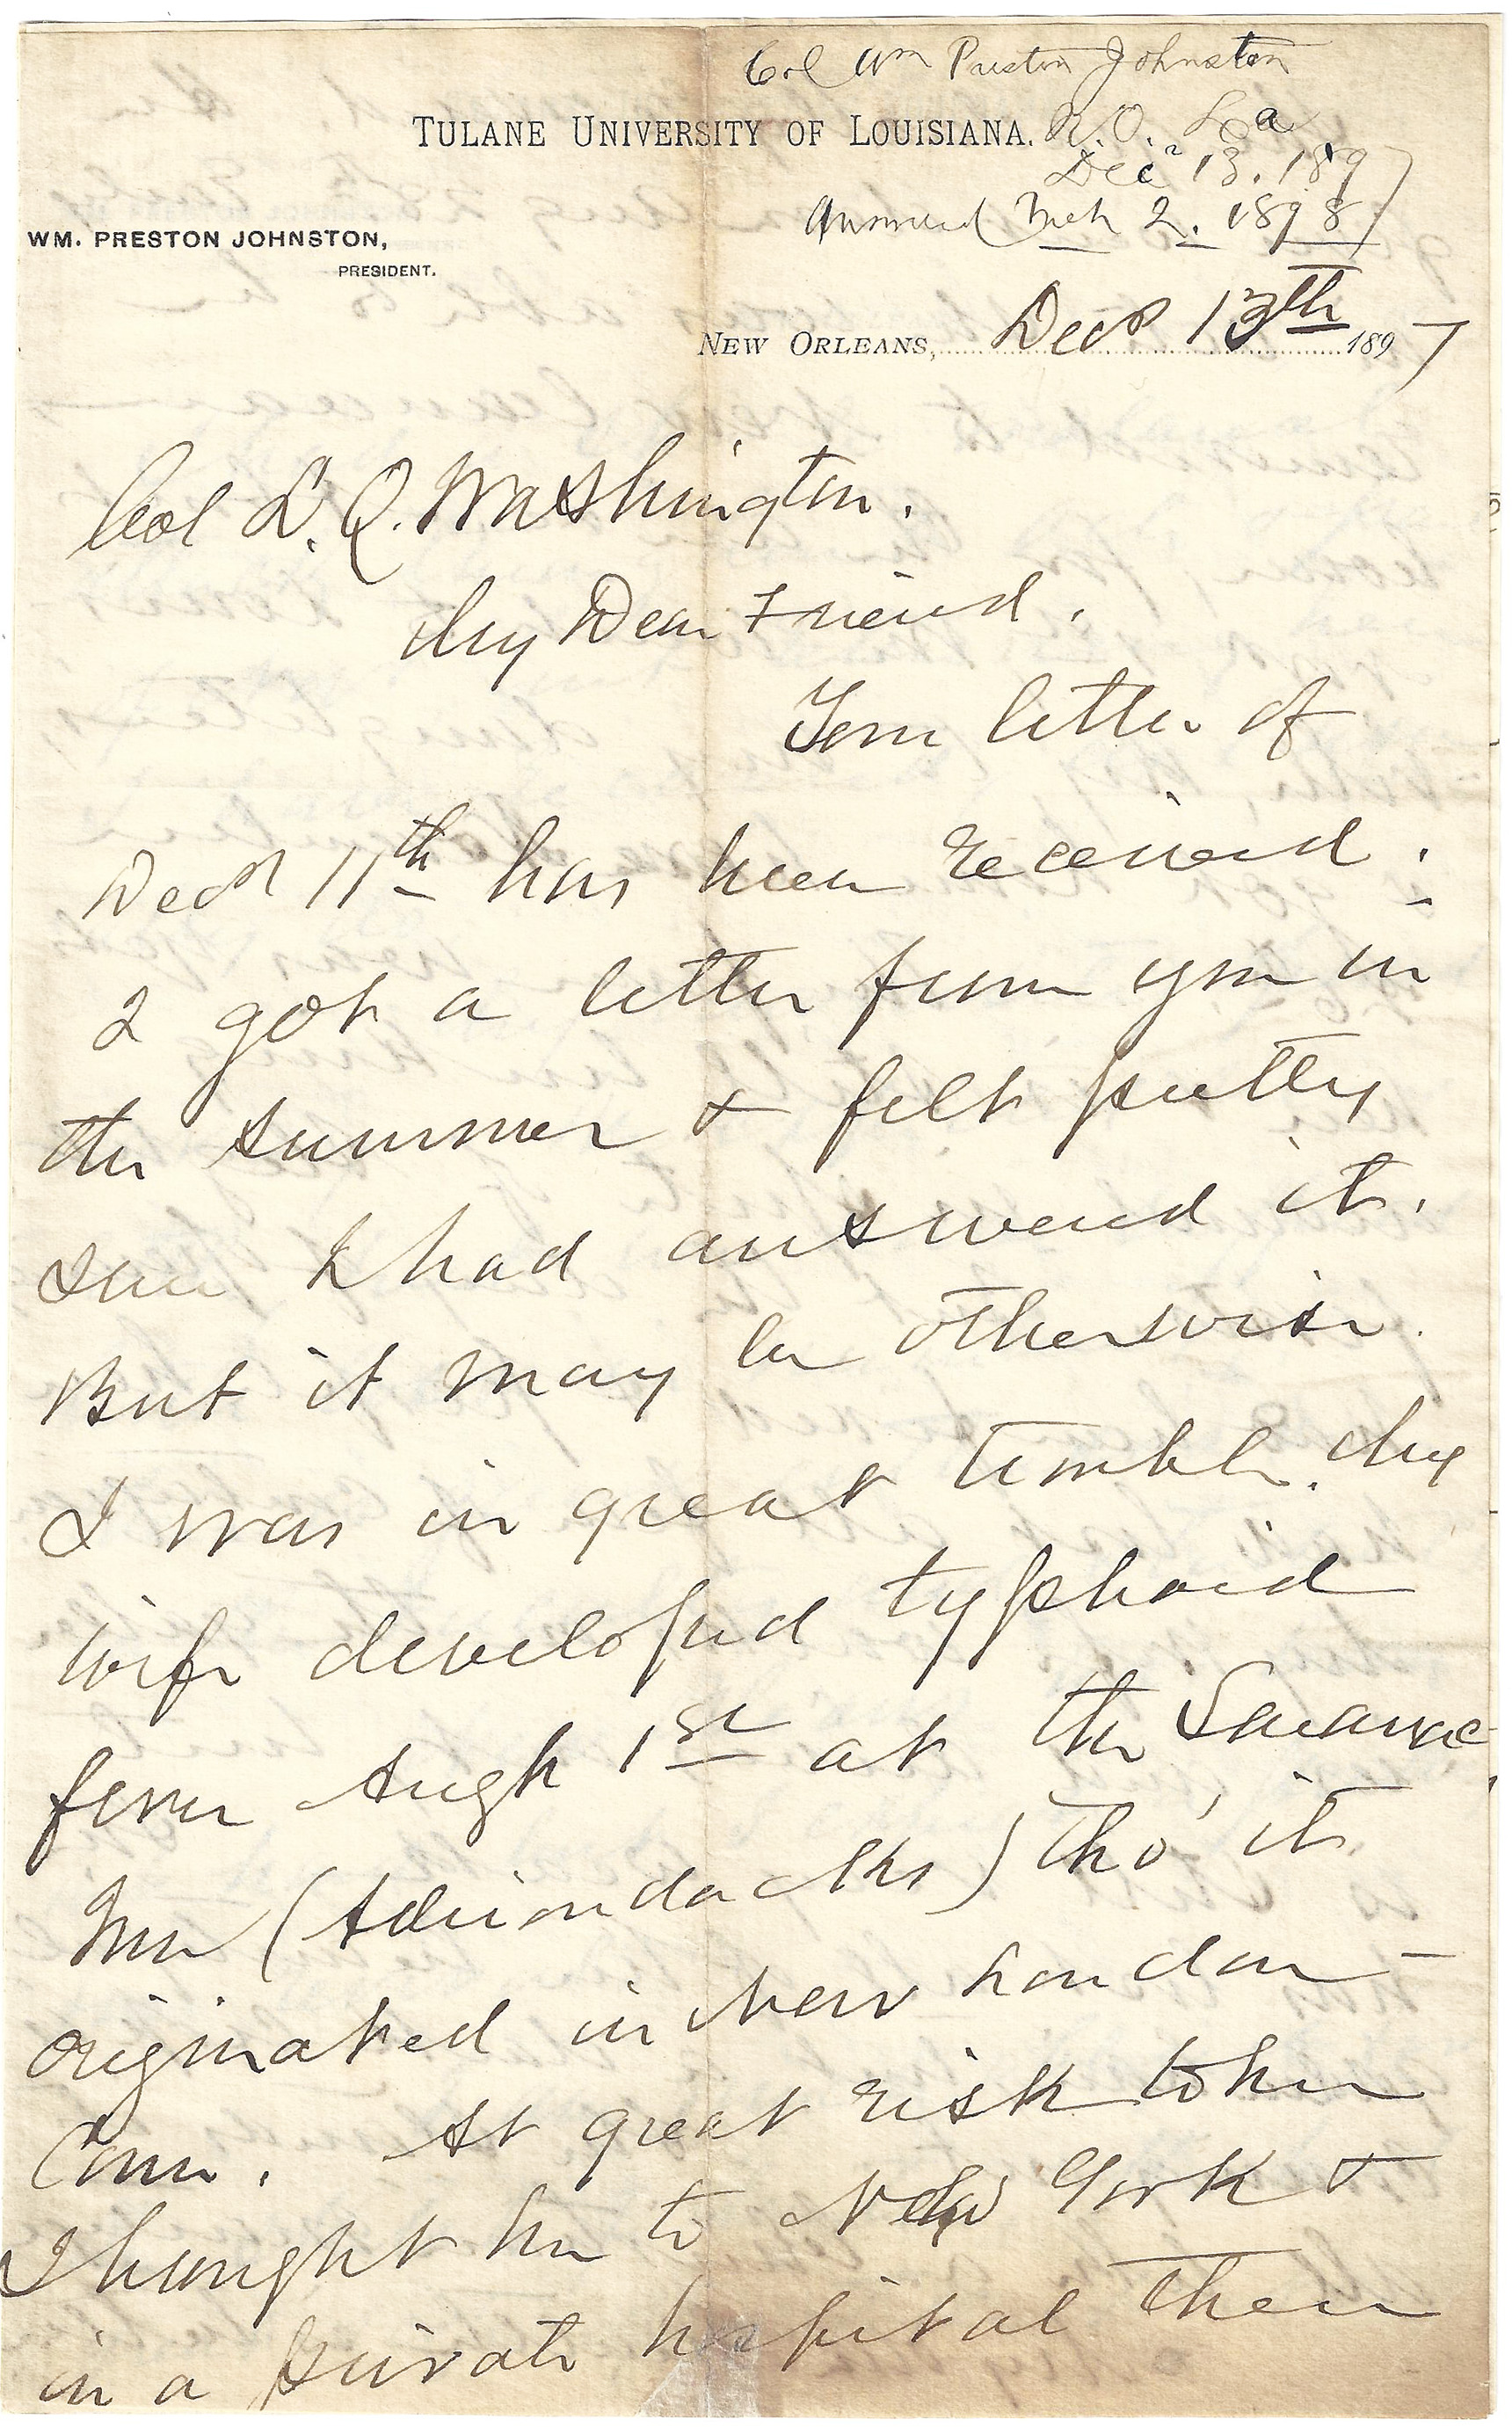 Col Wm Preston Johnston
TULANE UNIVERSITY OF LOUISIANA. N.O. La
Decr 13. 1897
WM. PRESTON JOHNSTON,
Answered Mch 2. 1898
PRESIDENT.
NEW ORLEANS, Decr 13th 1897
Col L. Q. Washington.
My Dear Friend.
Your letter of
Decr 11th has been received.
I got a letter from you in
the summer & felt pretty
sure I had answered it.
But it may be otherwise.
I was in great trouble. My
wife developed typhoid
fever Augt 1st at the Saranac
Inn (Adirondacks) tho' it
originated in New London
Conn. At great risk to her
I brought her to New York &
in a private hospital there